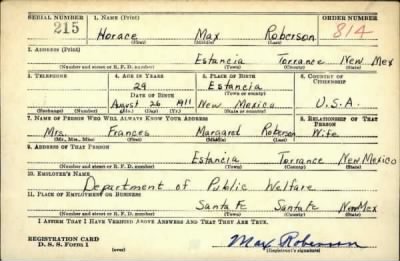 SERIAL NUMBER 1. NAME (Print) ORDER NUMBER
215 Horace Max Roberson 814
(First) (Middle) (Last)
2. ADDRESS (Print)
Estancia Torrance New Mex
(Number and street or R. F. D. number) (Town) (County) (State)
3. TELEPHONE 4. AGE IN YEARS 5. PLACE OF BIRTH 6. COUNTRY OF CITIZENSHIP
29 Estancia
DATE OF BIRTH (Town or county)
August 26 1911 New Mexico U.S.A.
(Exchange) (Number) (Mo.) (Day) (Yr.) (State or country)
7. NAME OF PERSON WHO WILL ALWAYS KNOW YOUR ADDRESS 8. RELATIONSHIP OF THAT PERSON
Mrs. Frances Margared Roberson Wife
(Mr., Mrs., Miss) (First) (Middle) (Last)
9. ADDRESS OF THAT PERSON
Estancia Torrance New Mexico
(Number and street or R. F. D. number) (Town) (County) (State)
10. EMPLOYER'S NAME
Department of Public Welfare
11. PLACE OF EMPLOYMENT OR BUSINESS
Santa Fe Santa Fe New Mex
(Number and street or R. F. D. number) (Town) (County) (State)
I AFFIRM THAT I HAVE VERIFIED ABOVE ANSWERS AND THAT THEY ARE TRUE.
REGISTRATION CARD
D. S. S. Form 1 (over) Max Roberson
(Registrant's signature)